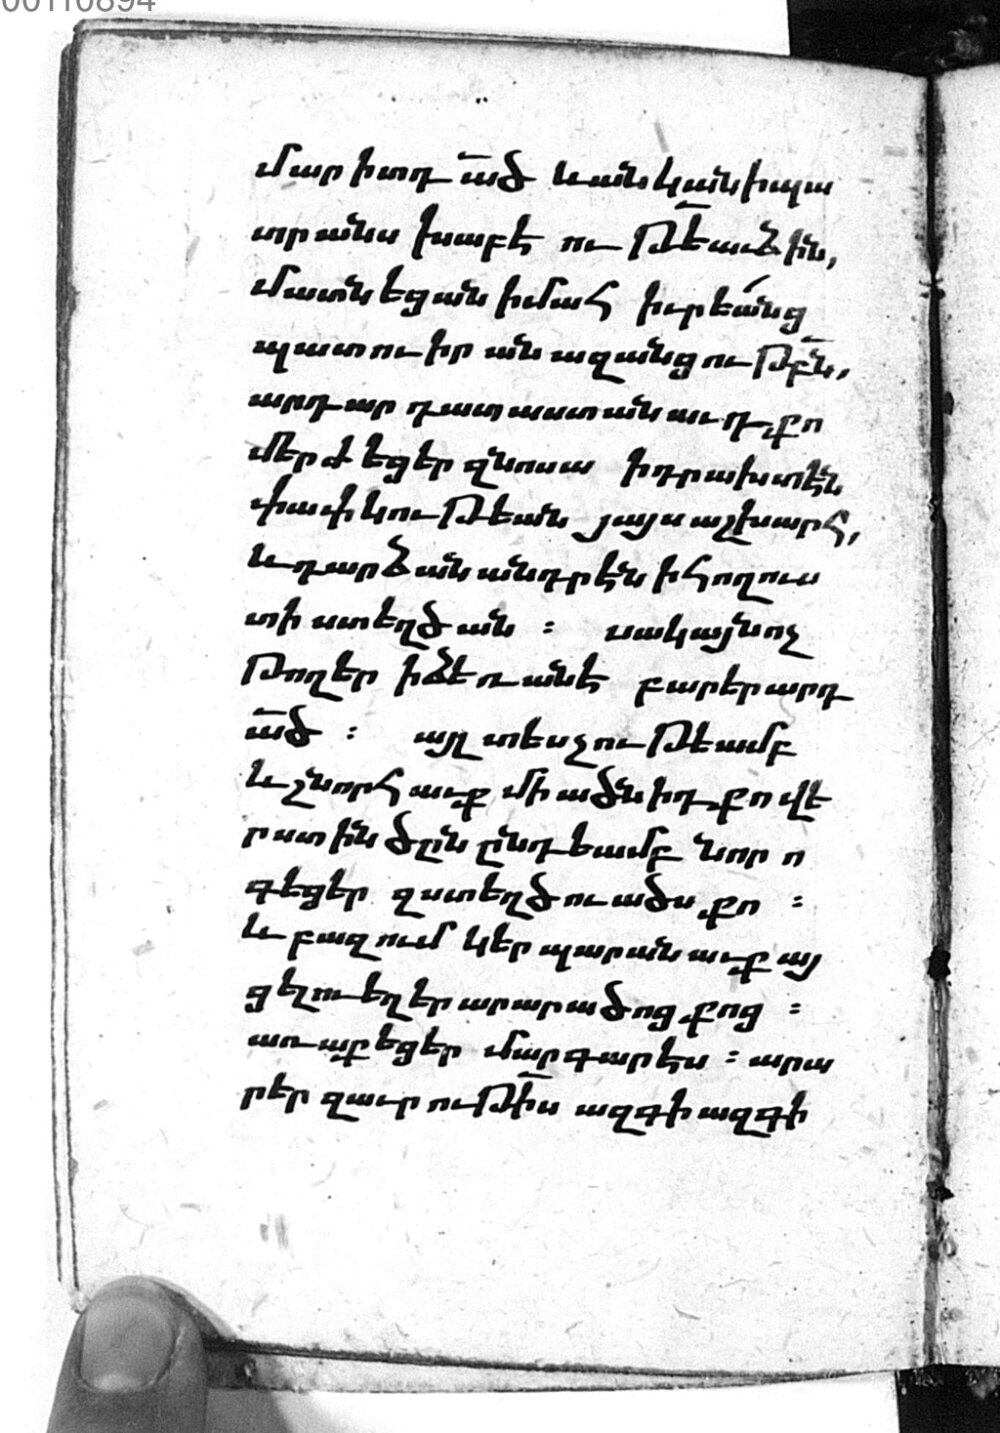 00110894
մարիտդ ած և անկան ի պա
տրանս խաբէութե աւձին,
մատնեցան ի մահ իւրեանց
պատուիրանազանցութբն,
արդար դատաստանաւդ քո
մերժեցեր զնոսա ի դրախտէն
փափկութեան յայս աշխարհ,
և դարձան անդրէն ի հողուս
տի ստեղծան ։ սակայն ոչ
թողեր ի ձեռանէ բարերարդ
ած ։ այլ տեսչութեամբ
և շնորհաւք միածնիդ քո վե
րստին ծընընդեամբ նորո
գեցեր զստեղծուածս քո ։
և բազում կերպարանաւք այ
ցելու եղեր արարածոց քոց ։
առաքեցեր մարգարէս ։ արա
րեր զաւրութիս ազգի ազգի